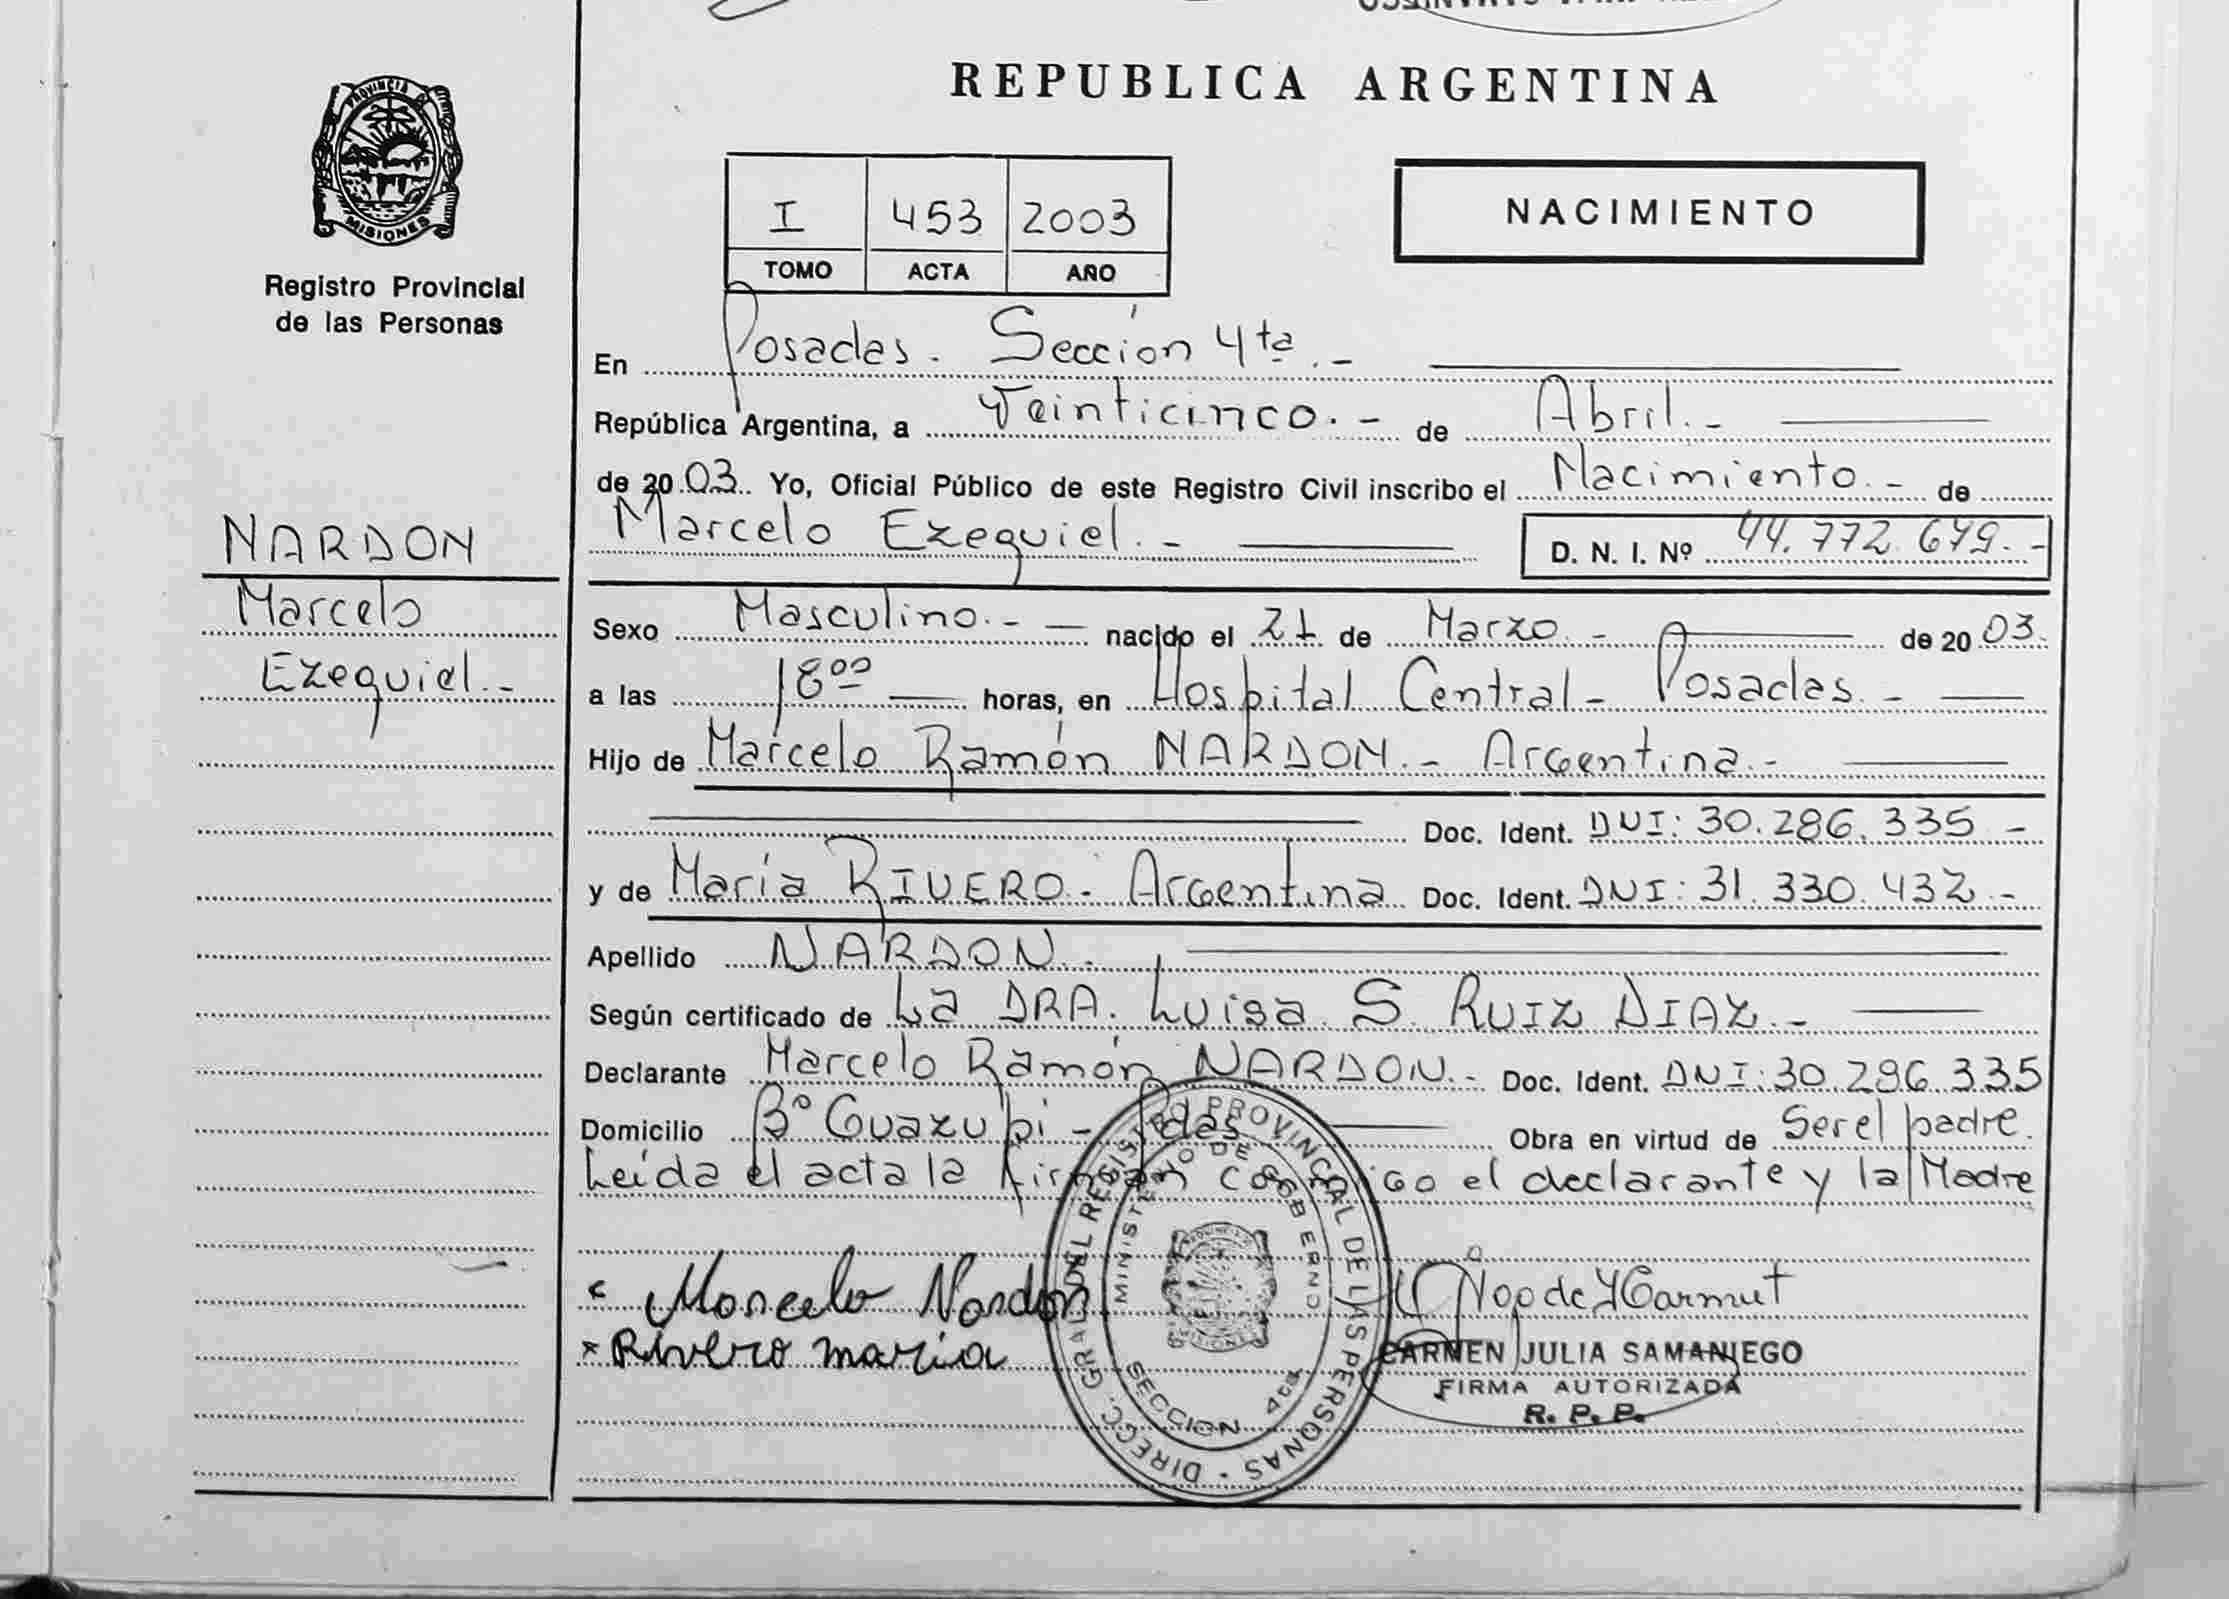 REPUBLICA ARGENTINA
PROVINCIA D
MISIONES
Registro Provincial
de las Personas
I 453 2003
TOMO ACTA AÑO
NACIMIENTO
NARDON
Marcelo
Ezequiel.-
En Posadas. Sección 4ta.-
República Argentina, a Veinticinco.- de Abril.-
de 20 03. Yo, Oficial Público de este Registro Civil inscribo el Nacimiento.- de
Marcelo Ezequiel.- D. N. I. Nº 44.772.679.-
Sexo Masculino.- nacido el 21 de Marzo.- de 20 03.
a las 18 00 horas, en Hospital Central- Posadas.-
Hijo de Marcelo Ramón NARDON.- Argentina.-
Doc. Ident. DNI: 30.286.335.-
y de María RIVERO.- Argentina Doc. Ident. DNI: 31.330.432.-
Apellido NARDON.-
Según certificado de La DRA. Luisa S. RUIZ DIAZ.-
Declarante Marcelo Ramón NARDON.- Doc. Ident. DNI: 30.286.335
Domicilio Bº Guazupi - Pdas Obra en virtud de Ser el padre.
Leída el acta la firman conmigo el declarante y la Madre
Marcelo Nardon
Rivero maria
DIRECC. GRAL. DEL REGISTRO PROVINCIAL DE LAS PERSONAS
MINISTERIO DE GOBIERNO
SECCION 4ta
CARMEN JULIA SAMANIEGO
FIRMA AUTORIZADA
R. P. P.